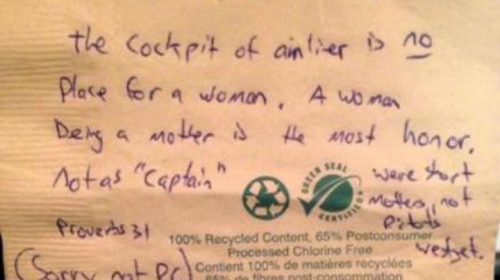 the cockpit of airlier is no
Place for a woman. A woman
being a mother is the most honor.
Not as "Captain"
were short
mothers, not
Pilots
westjet.
Proverbs 31
(Sorry not PC)
GREEN SEAL
CERTIFIED
100% Recycled Content, 65% Postconsumer
Processed Chlorine Free
Contient 100% de matières recyclées
65% de fibres post-consommation